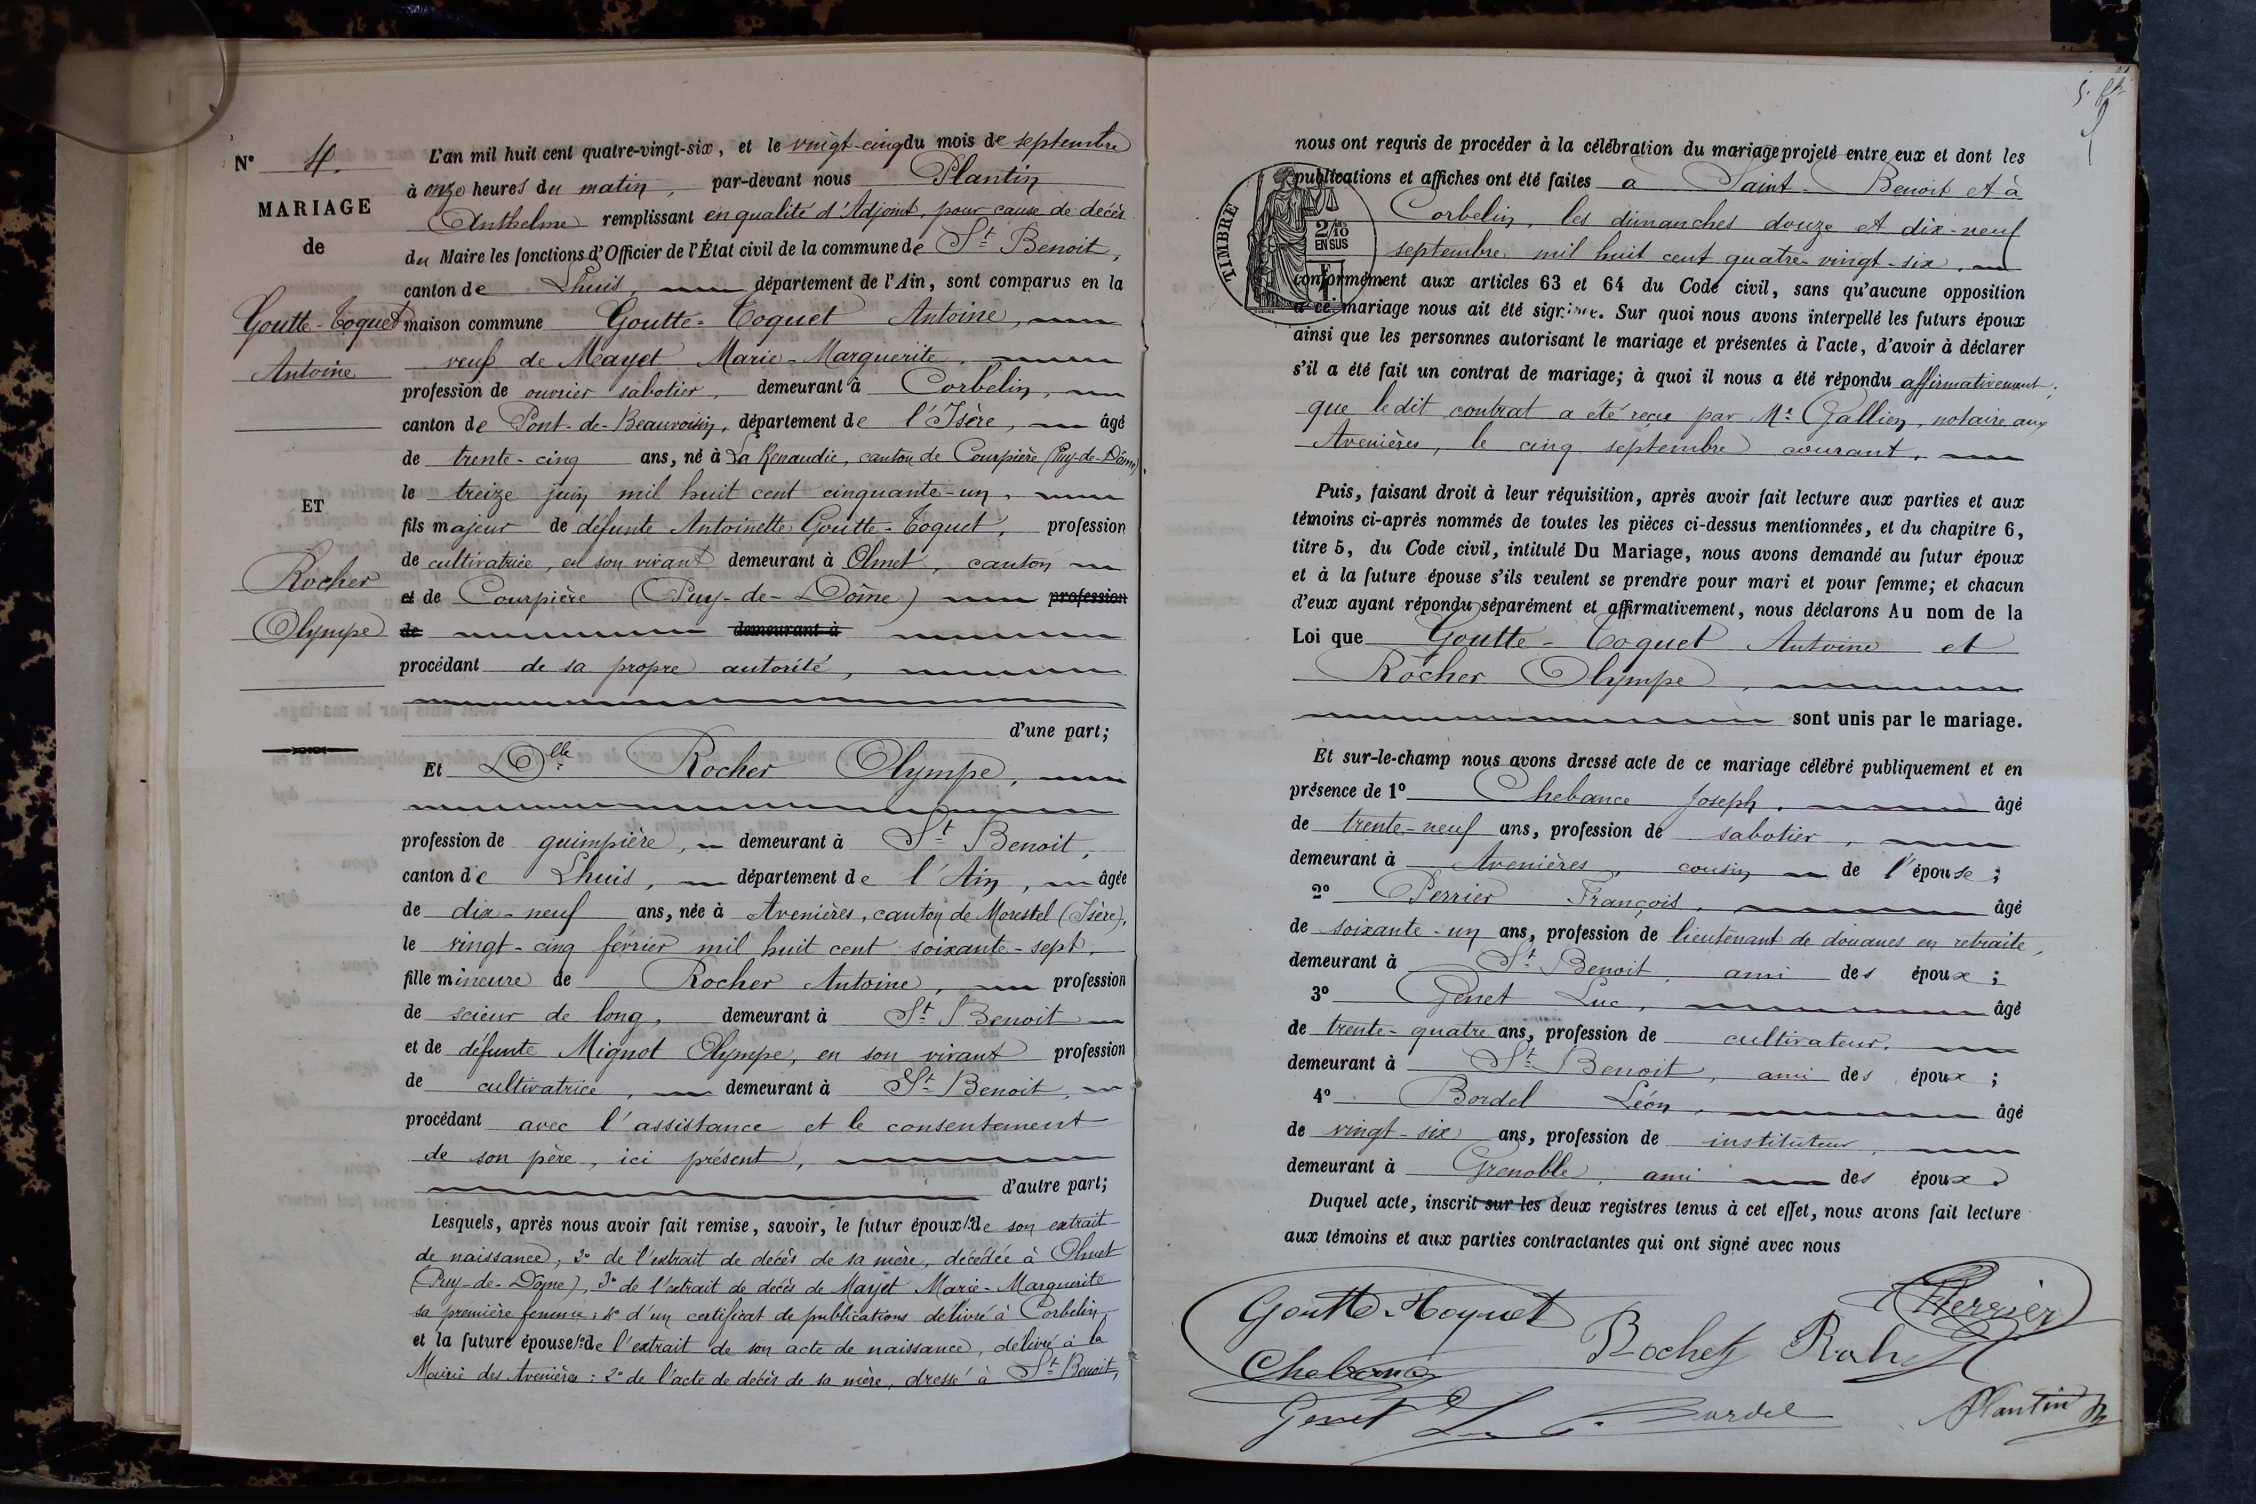 N° 4.
MARIAGE
de
Goutte-Toquet
Antoine
ET
Rocher
Olympe
L'an mil huit cent quatre-vingt-six, et le vingt-cinq du mois de septembre
à onze heures du matin, par-devant nous Plantin
Anthelme remplissant en qualité d'Adjoint, pour cause de décès
du Maire les fonctions d'Officier de l'État civil de la commune de St Benoit,
canton de Lhuis, département de l'Ain, sont comparus en la
maison commune Goutte-Toquet Antoine,
veuf de Mayet Marie-Marguerite,
profession de ouvrier sabotier, demeurant à Corbelin,
canton de Pont-de-Beauvoisin, département de l'Isère, âgé
de trente-cinq ans, né à La Renaudie, canton de Courpière (Puy-de-Dôme),
le treize juin mil huit cent cinquante-un,
fils majeur de défunte Antoinette Goutte-Toquet, profession
de cultivatrice, en son vivant demeurant à Olmet, canton
et de Courpière (Puy-de-Dôme) profession
de demeurant à
procédant de sa propre autorité,
d'une part;
Et Dlle Rocher Olympe,
profession de guimpière, demeurant à St Benoit,
canton de Lhuis, département de l'Ain, âgée
de dix-neuf ans, née à Avenières, canton de Morestel (Isère),
le vingt-cinq février mil huit cent soixante-sept,
fille mineure de Rocher Antoine, profession
de scieur de long, demeurant à St Benoit
et de défunte Mignot Olympe, en son vivant profession
de cultivatrice, demeurant à St Benoit,
procédant avec l'assistance et le consentement
de son père, ici présent,
d'autre part;
Lesquels, après nous avoir fait remise, savoir, le futur époux 1° de son extrait
de naissance, 2° de l'extrait de décès de sa mère, décédée à Olmet
(Puy-de-Dôme), 3° de l'extrait de décès de Mayet Marie-Marguerite
sa première femme; 4° d'un certificat de publications délivré à Corbelin,
et la future épouse 1° de l'extrait de son acte de naissance, délivré à la
Mairie des Avenières: 2° de l'acte de décès de sa mère, dressé à St Benoit,
nous ont requis de procéder à la célébration du mariage projeté entre eux et dont les
publications et affiches ont été faites à Saint-Benoit et à
Corbelin, les dimanches douze et dix-neuf
septembre mil huit cent quatre-vingt-six,
TIMBRE
2/10
EN SUS
conformément aux articles 63 et 64 du Code civil, sans qu'aucune opposition
à ce mariage nous ait été signifiée. Sur quoi nous avons interpellé les futurs époux
ainsi que les personnes autorisant le mariage et présentes à l'acte, d'avoir à déclarer
s'il a été fait un contrat de mariage; à quoi il nous a été répondu affirmativement;
que ledit contrat a été reçu par Me Gallien, notaire aux
Avenières, le cinq septembre courant.
Puis, faisant droit à leur réquisition, après avoir fait lecture aux parties et aux
témoins ci-après nommés de toutes les pièces ci-dessus mentionnées, et du chapitre 6,
titre 5, du Code civil, intitulé Du Mariage, nous avons demandé au futur époux
et à la future épouse s'ils veulent se prendre pour mari et pour femme; et chacun
d'eux ayant répondu séparément et affirmativement, nous déclarons Au nom de la
Loi que Goutte-Toquet Antoine et
Rocher Olympe,
sont unis par le mariage.
Et sur-le-champ nous avons dressé acte de ce mariage célébré publiquement et en
présence de 1° Chebance Joseph, âgé
de trente-neuf ans, profession de sabotier,
demeurant à Avenières, cousin de l'épouse;
2° Perrier François, âgé
de soixante-un ans, profession de lieutenant de douanes en retraite,
demeurant à St Benoit, ami des époux;
3° Genet Luc, âgé
de trente-quatre ans, profession de cultivateur,
demeurant à St Benoit, ami des époux;
4° Bordel Léon, âgé
de vingt-six ans, profession de instituteur,
demeurant à Grenoble, ami des époux.
Duquel acte, inscrit sur les deux registres tenus à cet effet, nous avons fait lecture
aux témoins et aux parties contractantes qui ont signé avec nous
Goutte Toquet
Perrier
Rocher
Chebance
Genet
Bordel
Plantin